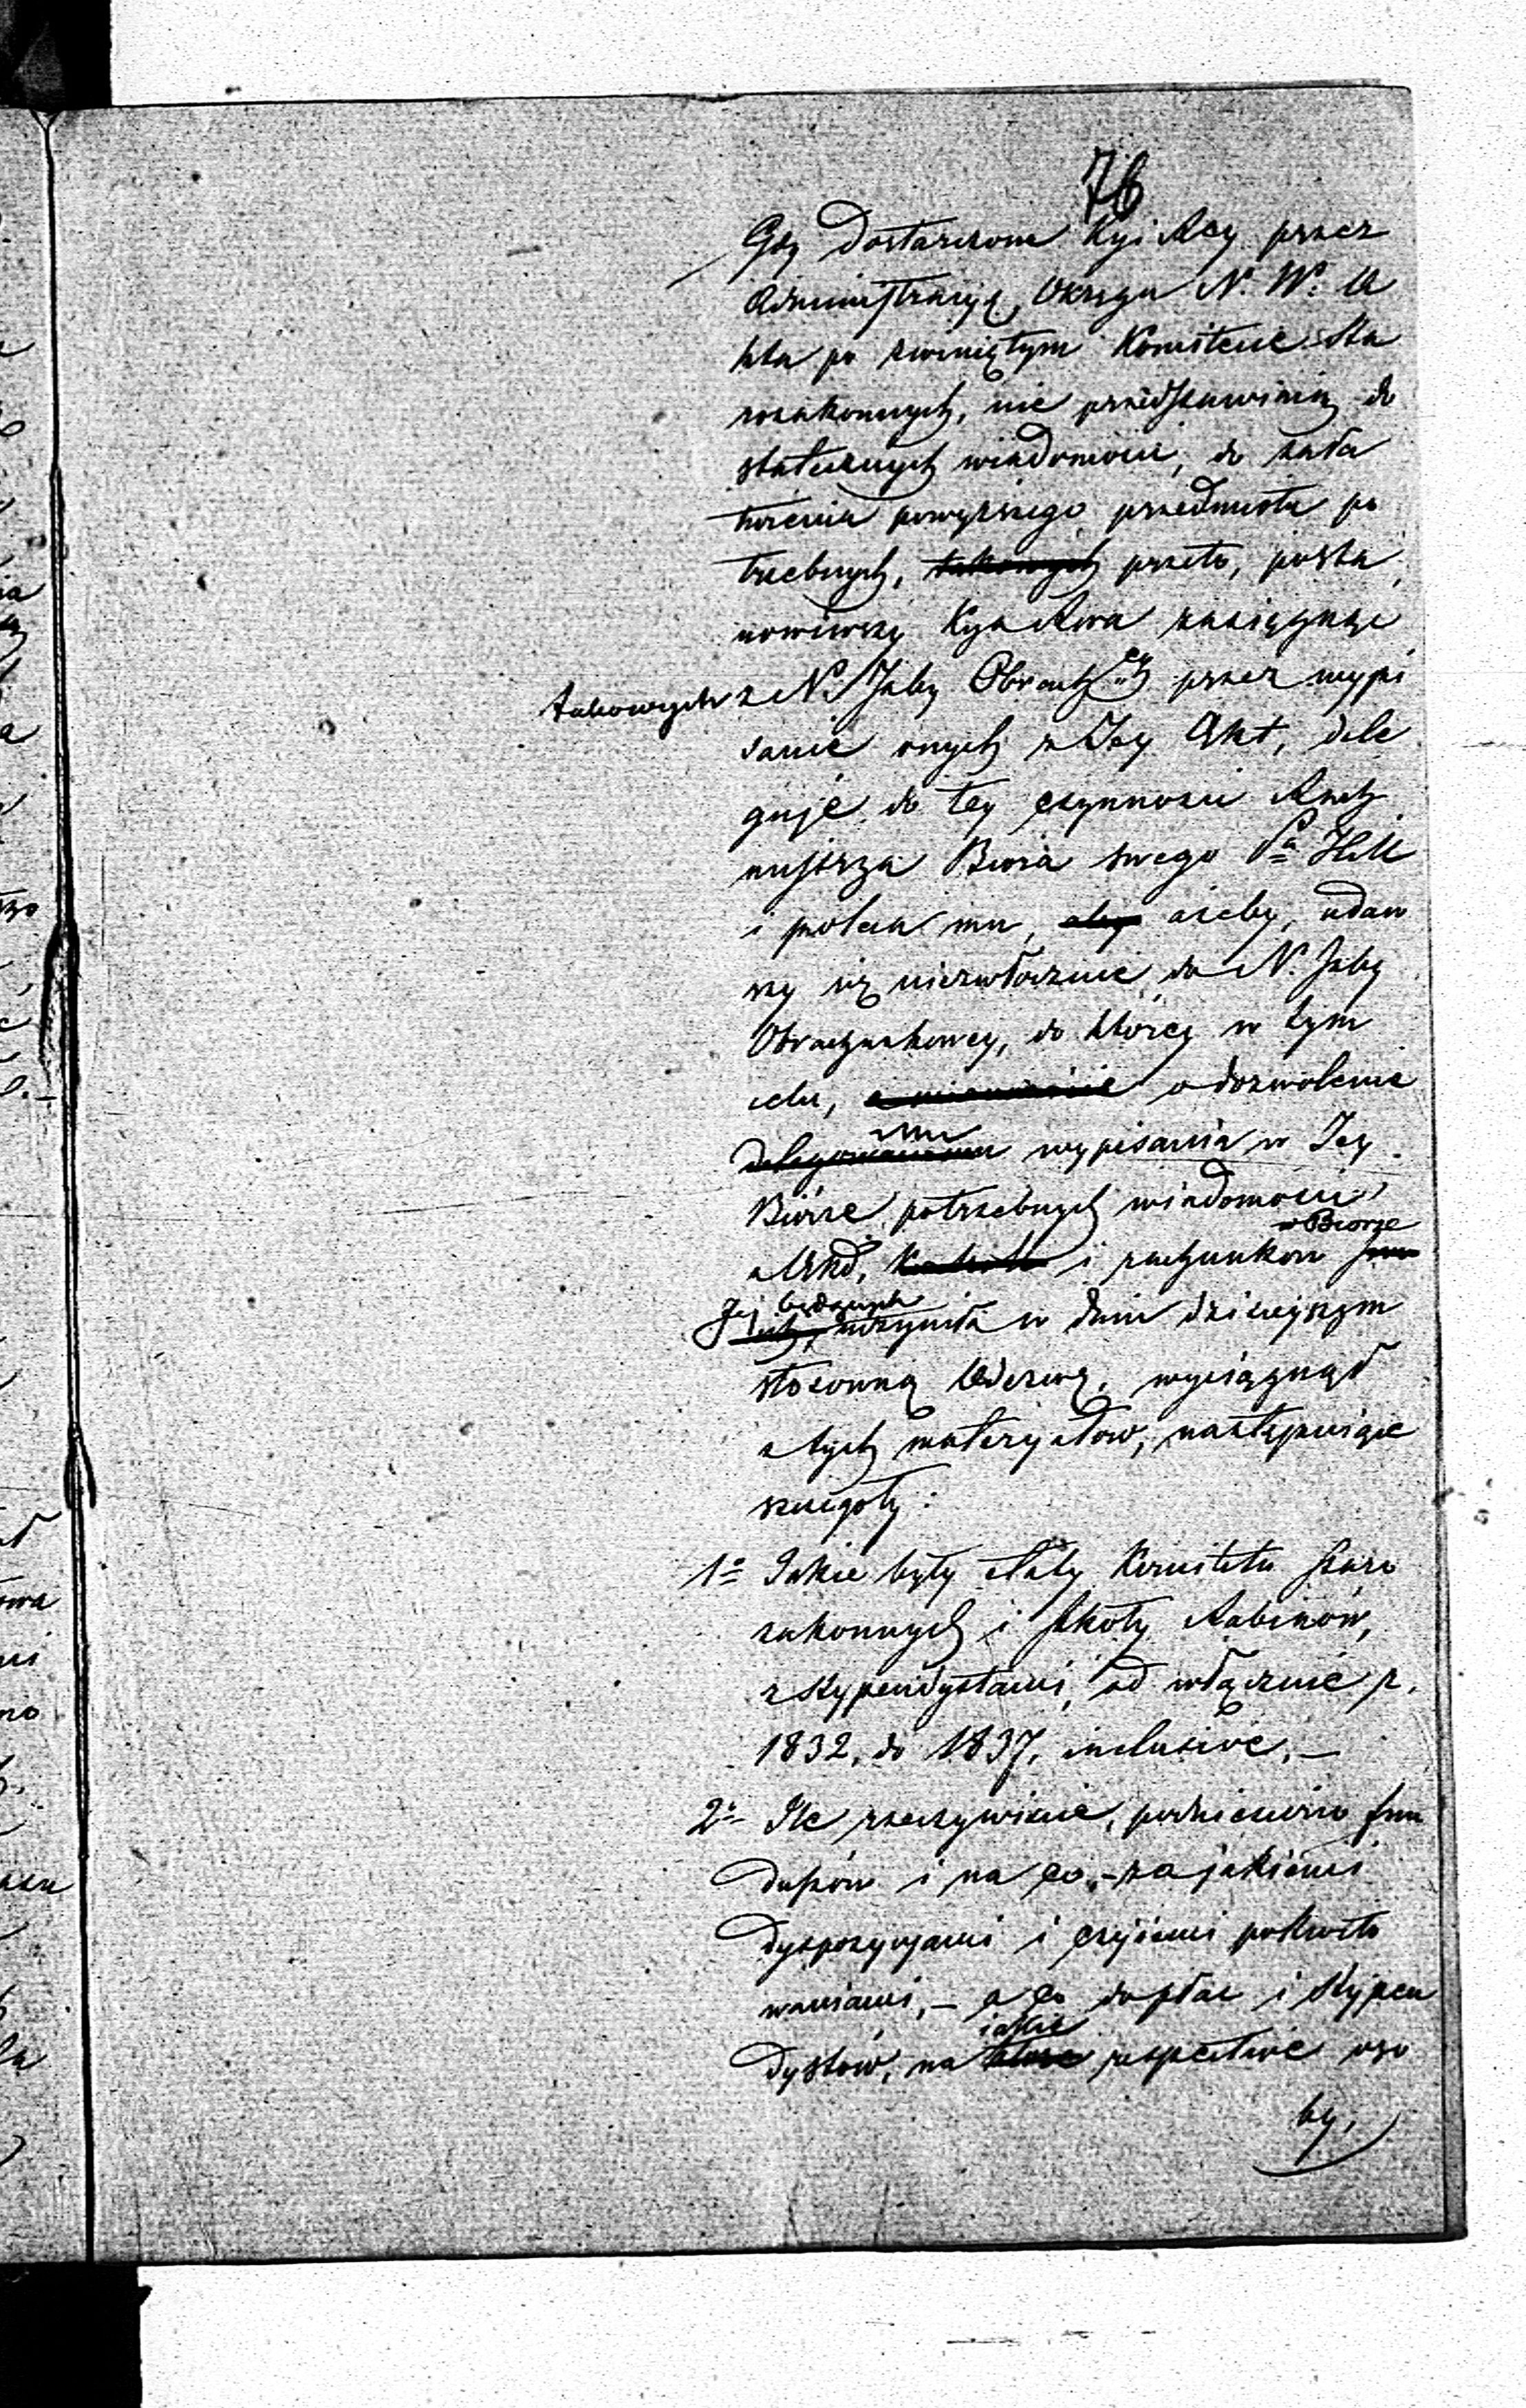 76
Gdy dostarczone Kyi Rey przez
Administracyą Okręgu N. W. A
kta po zwiniętym Komitecie Sta
rozakonnych, nie przedstawiaią do
statecznych wiadomości, do zała
twienia powyższego przedmiotu po
trzebnych, takowych przeto, posta
nowiwszy Kya Rwa zasięgnąć
takowych z N. Izby Obrach. przez wypi
sanie onych z Jey Akt, dele
guje do tey czynności
Biura swego
i poleca mu, aby ażeby, udaw
szy się niezwłocznie do N. Izby
Obrachunkowey, do którey w tym
celu, o dozwolenie
wypisania w Jey
Biórze potrzebnych wiadomości
z Akt, i rachunków w Biorze
Jej będących uczyniła w dniu dzisieyszym
stosowną Odezwę, wyciągnął
z tych materyałów, następuiące
szczegóły:
1o Jakie były etaty Komitetu Staro
zakonnych i Szkoły Rabinów,
z Stypendystami, od włącznie r.
1832, do 1837, inclusive. —
2o Ile rzeczywiście, podniesiono fun
duszów i na co, – za jakiemi
dyspozycyami i czyiemi pokwito
waniami, – a co do płac i Stypen
dystów, na iakie respective oso
by,